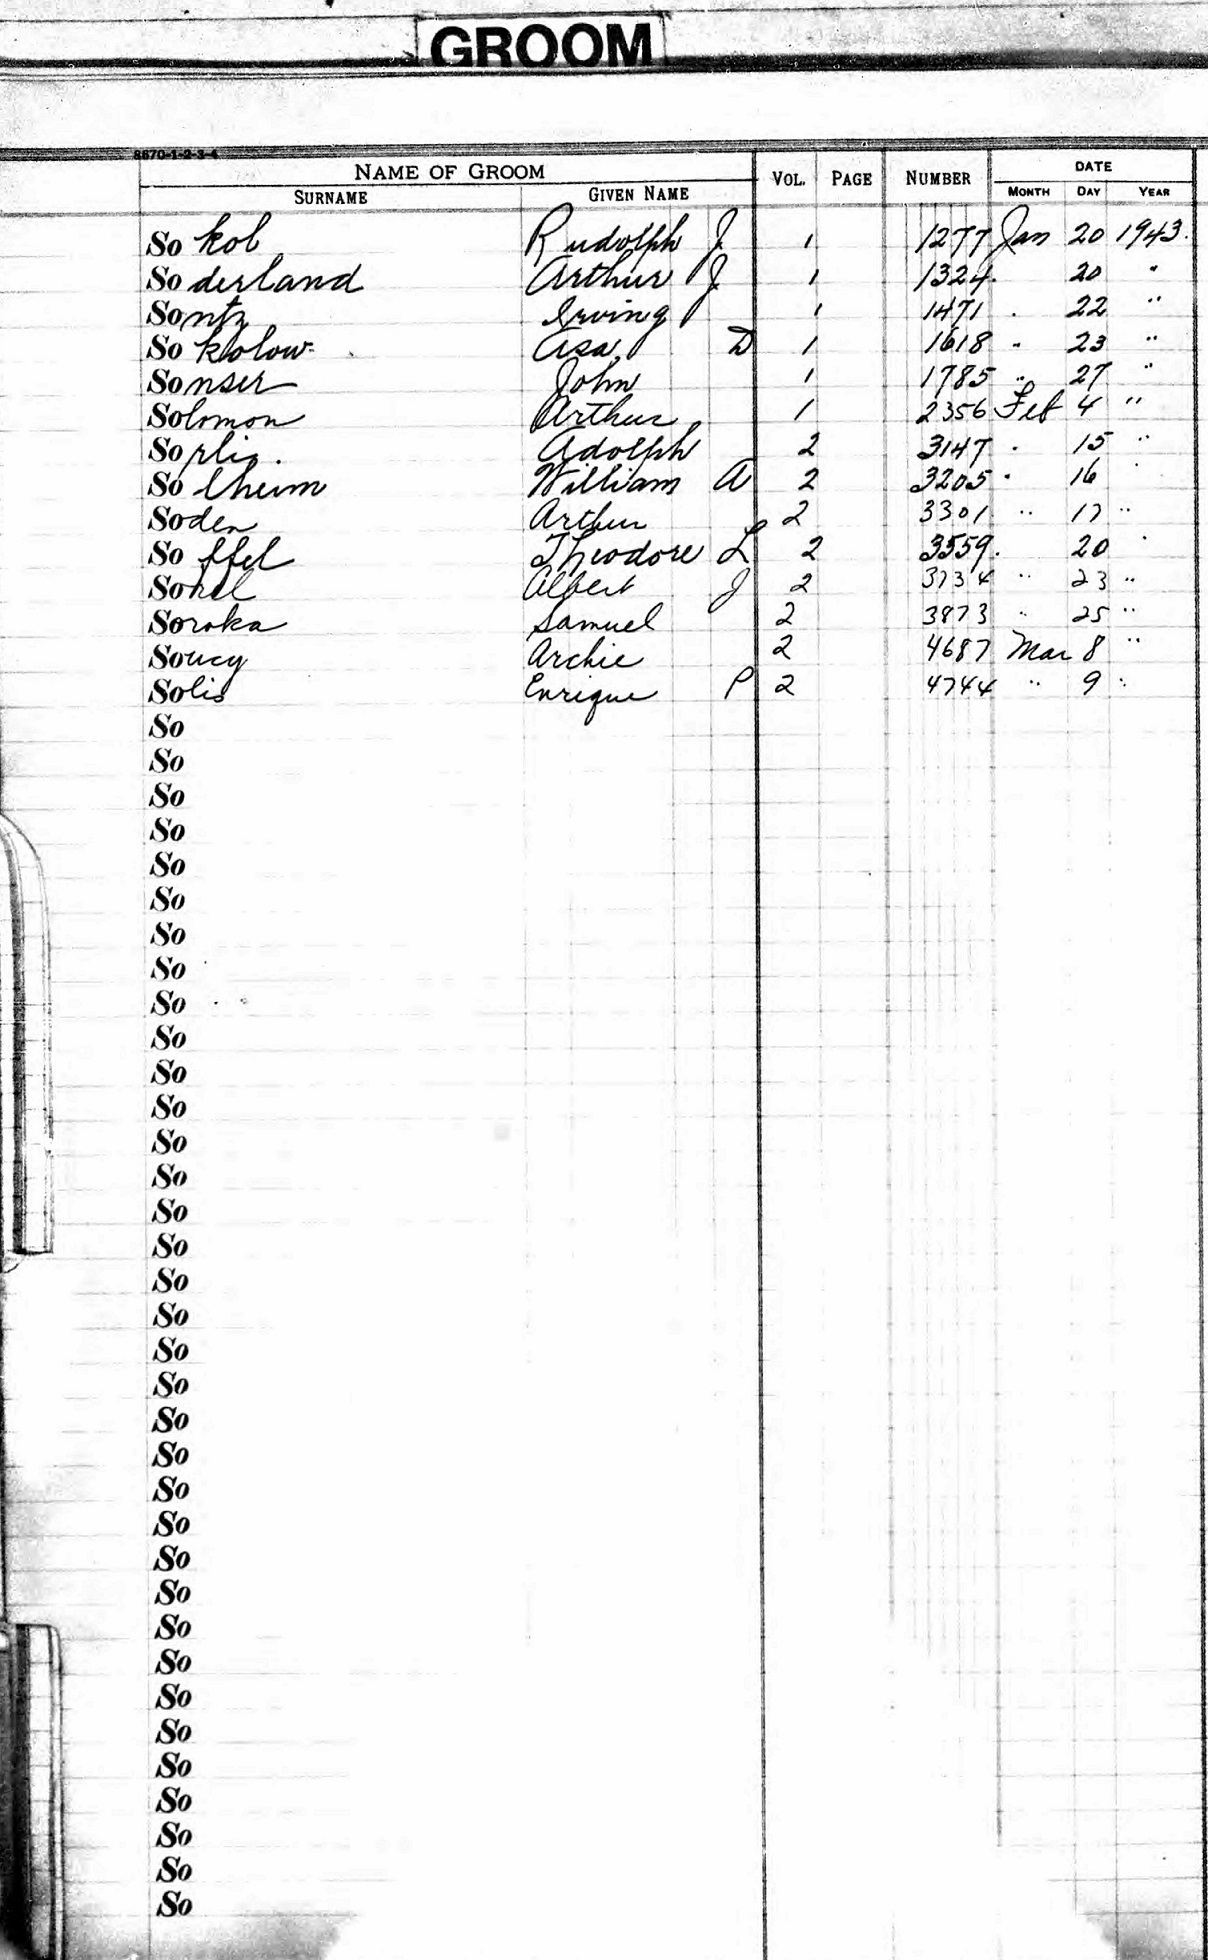 GROOM
8670-1-2-3-4
NAME OF GROOM VOL. PAGE NUMBER DATE
SURNAME GIVEN NAME MONTH DAY YEAR
Sokol Rudolph J. 1 1277 Jan 20 1943.
Soderland Arthur J 1 1324 . 20 "
Sontz Irving 1 1471 . 22 "
Sokolow Asa D 1 1618 " 23 "
Sonser John 1 1785 " 27 "
Solomon Arthur 1 2356 Feb 4 "
Sorlig. Adolph 2 3147 . 15 "
Solheim William A 2 3205 . 16
Soden Arthur 2 3301 " 17 "
Soffel Theodore L 2 3559. 20 "
Albert J 2 3734 " 23 "
Soroka Samuel 2 3873 " 25 "
Soucy Archie 2 4687 Mar 8 "
Solis Enrique P 2 4744 " 9 "
So
So
So
So
So
So
So
So
So
So
So
So
So
So
So
So
So
So
So
So
So
So
So
So
So
So
So
So
So
So
So
So
So
So
So